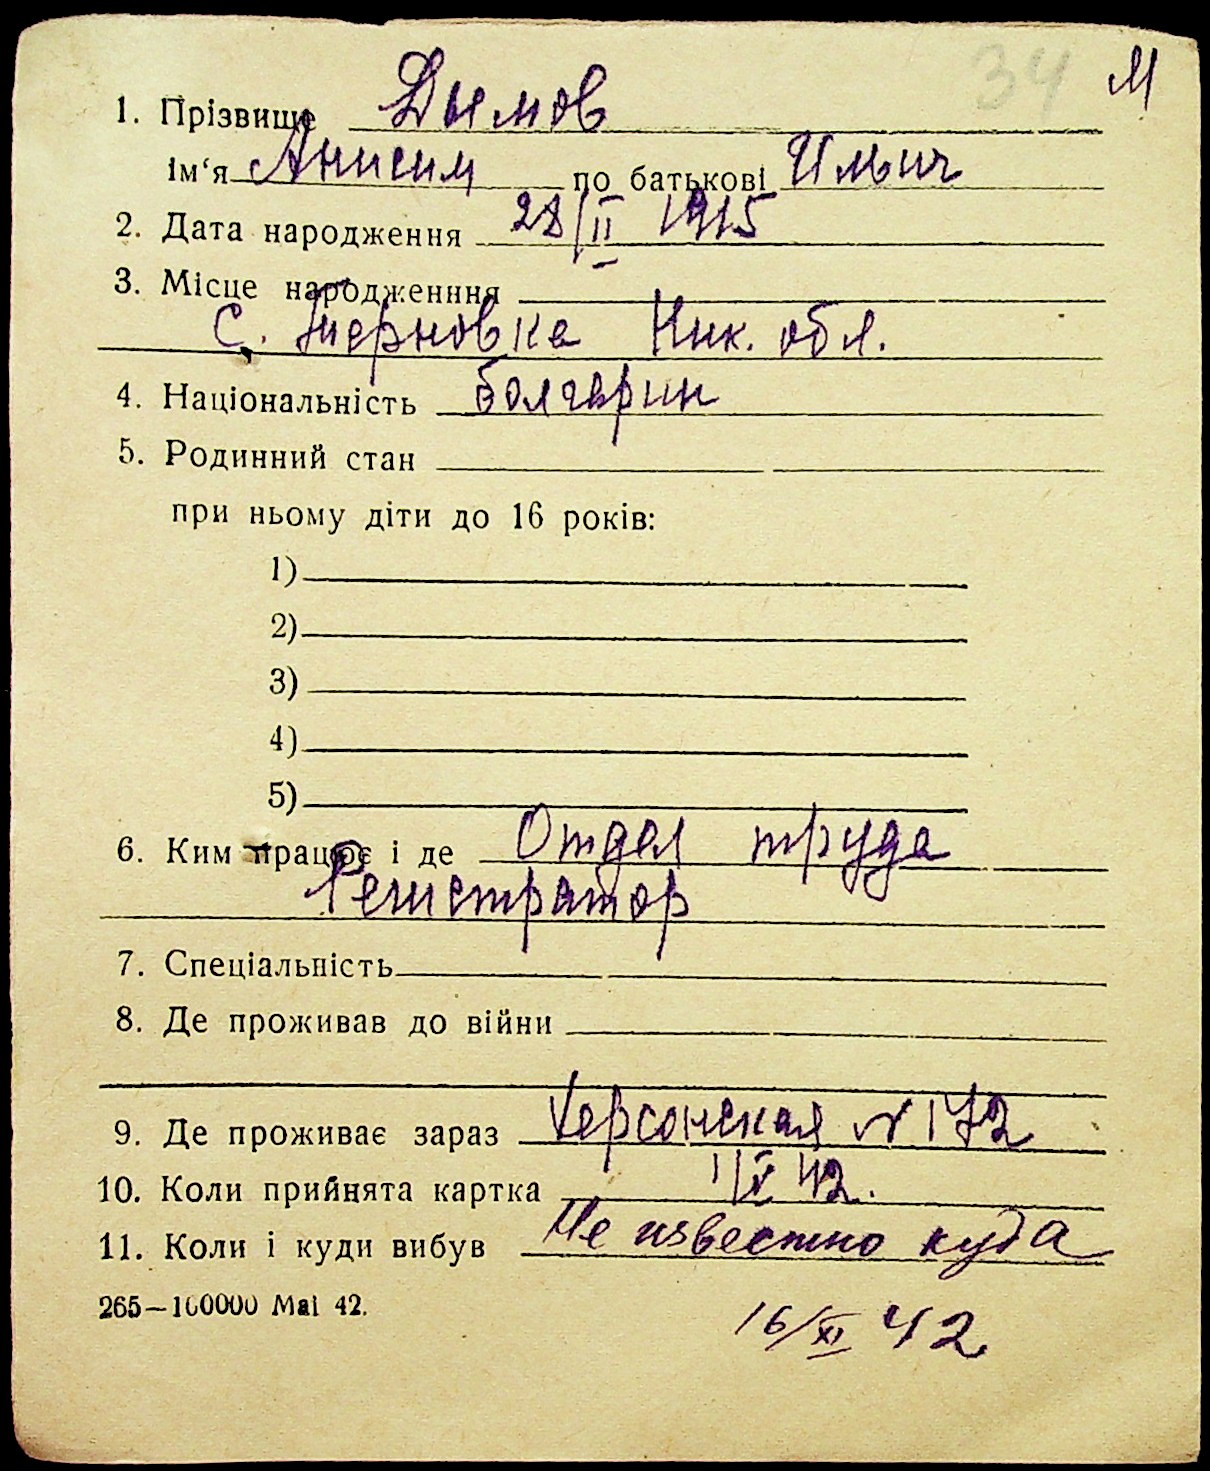 34 М
1. Прізвище Дымов
ім‘я Анисим по батькові Ильич
2. Дата народження 28/II 1915
3. Місце народженння
с. Терновка Ник. обл.
4. Національність болгарин
5. Родинний стан
при ньому діти до 16 років:
1)
2)
3)
4)
5)
6. Ким працює і де Отдел труда
Регистратор
7. Спеціальність
8. Де проживав до війни
9. Де проживає зараз Херсонская № 172
10. Коли прийнята картка 1/V 42.
11. Коли і куди вибув Не известно куда
265—100000 Mai 42.
16/XI 42